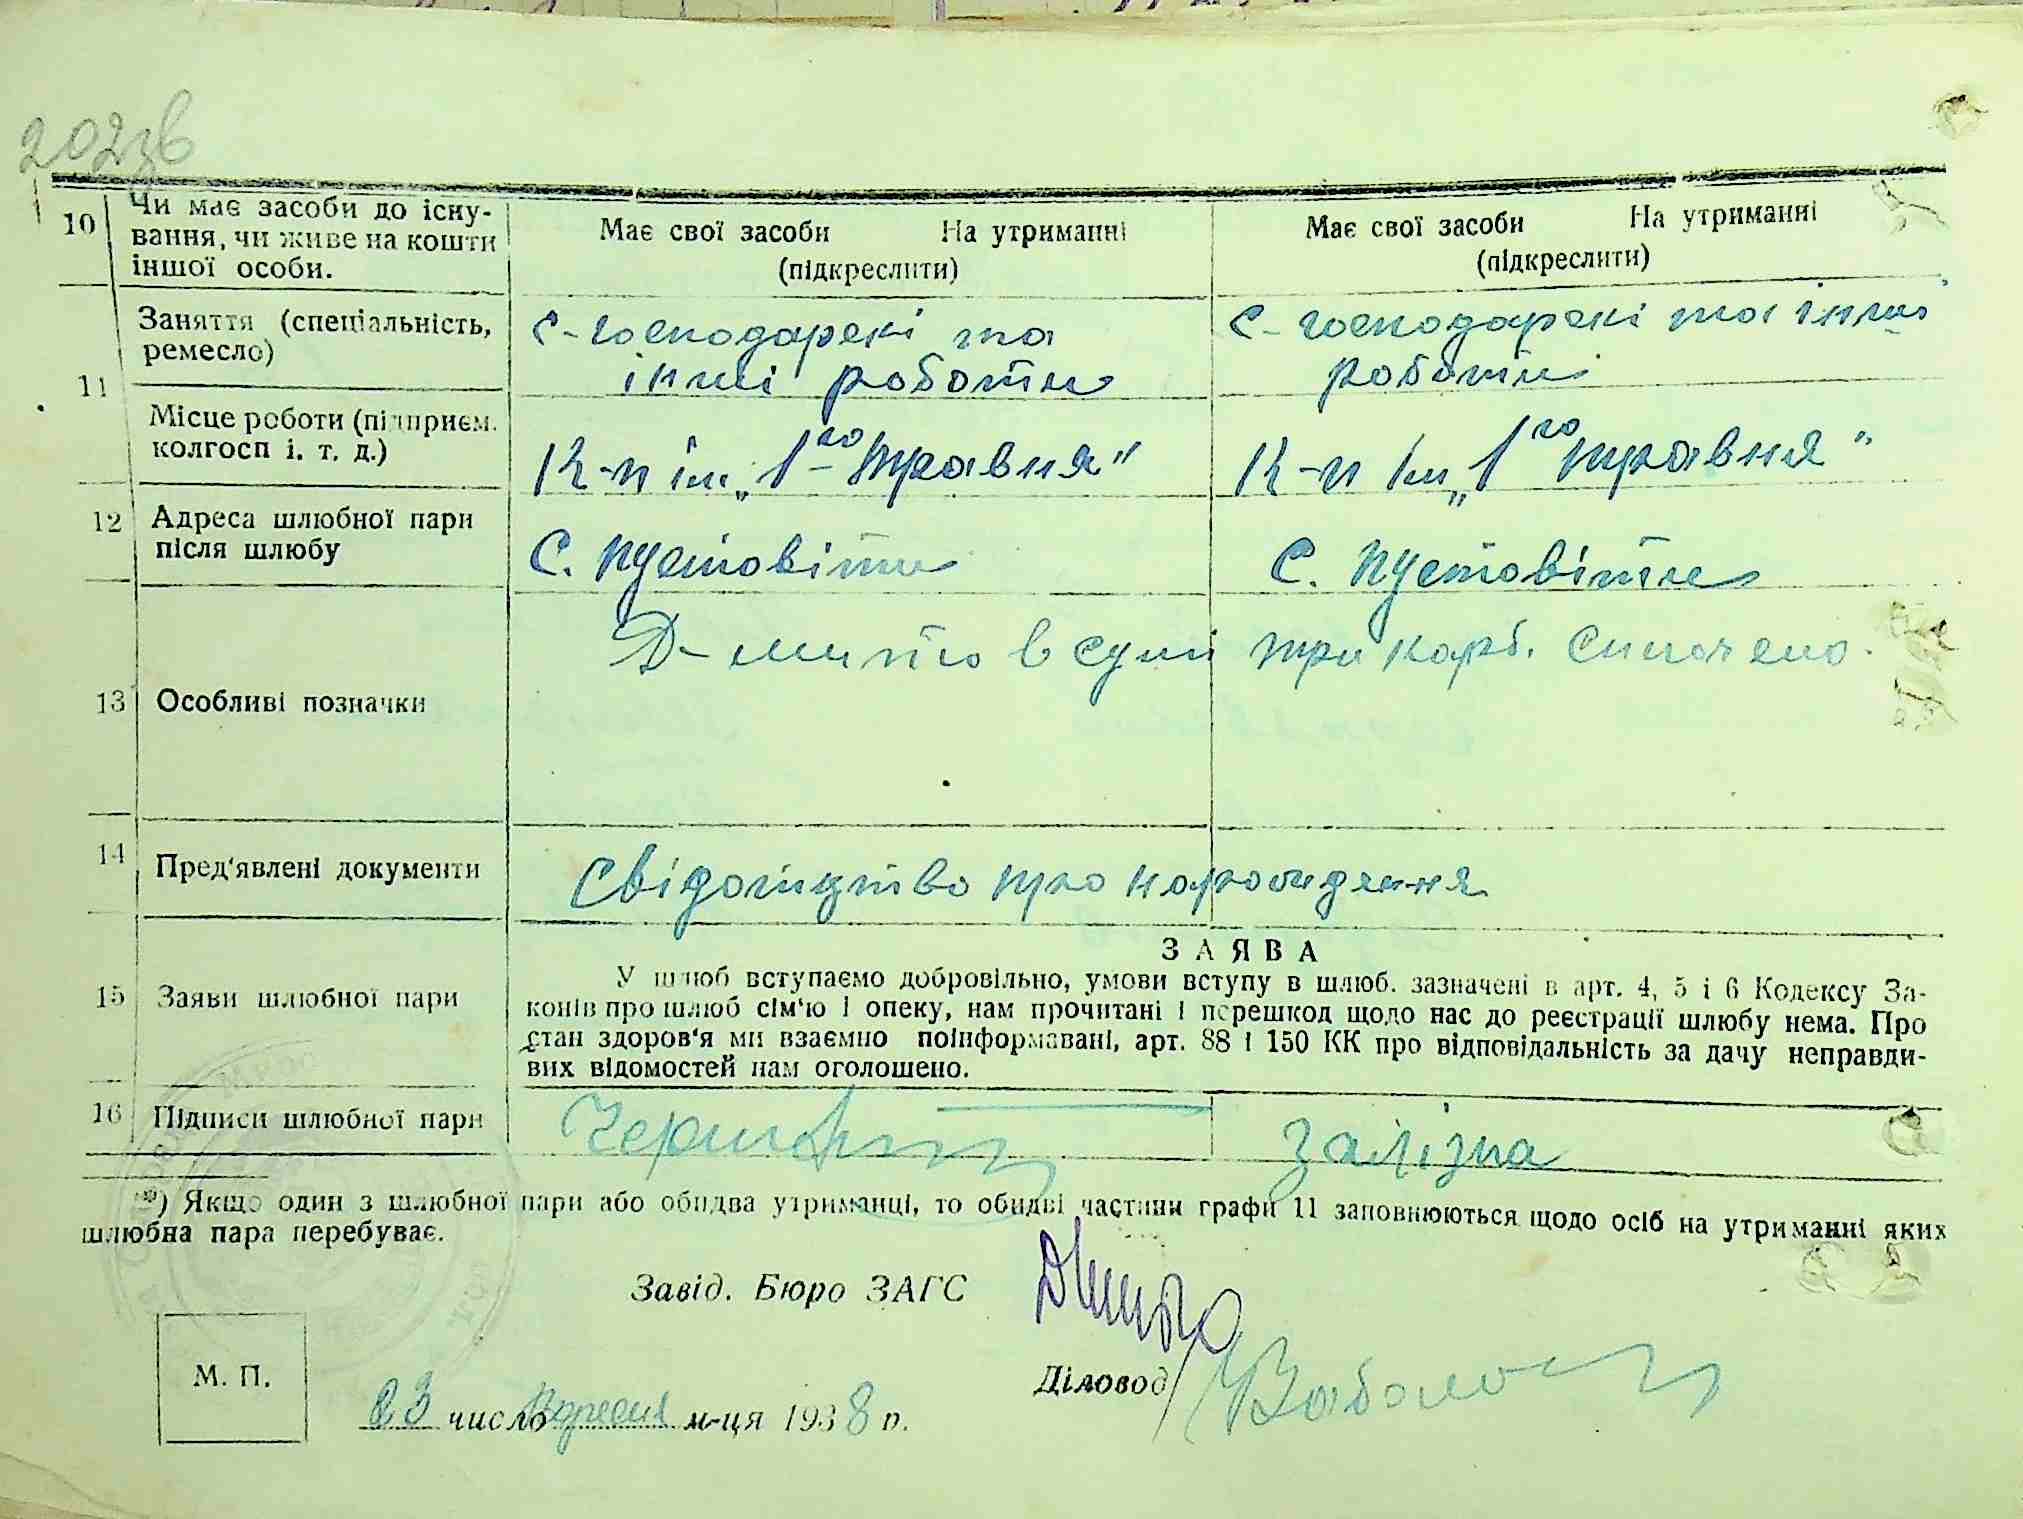 202зв
10 Чи має засоби до існу-
вання, чи живе на кошти
іншої особи.
Має свої засоби На утриманні
(підкреслити)
Має свої засоби На утриманні
(підкреслити)
11 Заняття (спеціальність,
ремесло)
с-господарскі та
інші роботи
с-господарскі та інші
роботи
Місце роботи (підприєм.
колгосп і. т. д.)
К-п ім „1го травня"
К-п ім „1го травня"
12 Адреса шлюбної пари
після шлюбу
С. Пустовіти
С. Пустовіти
13 Особливі позначки
Д-мито в сумі три карб. сплочено.
14 Пред'явлені документи
Свідотцтво про народження
15 Заяви шлюбної пари
ЗАЯВА
У шлюб вступаємо добровільно, умови вступу в шлюб. зазначені в арт. 4, 5 і 6 Кодексу За-
конів про шлюб сім'ю і опеку, нам прочитані і перешкод щодо нас до реєстрації шлюбу нема. Про
стан здоров'я ми взаємно поінформавані, арт. 88 і 150 КК про відповідальність за дачу неправди-
вих відомостей нам оголошено.
16 Підписи шлюбної пари
Залізна
*) Якщо один з шлюбної пари або обидва утриманці, то обидві частини графи 11 заповнюються щодо осіб на утриманні яких
шлюбна пара перебуває.
Завід. Бюро ЗАГС
Діловод
М. П.
23 число Вересня м-ця 1938 р.